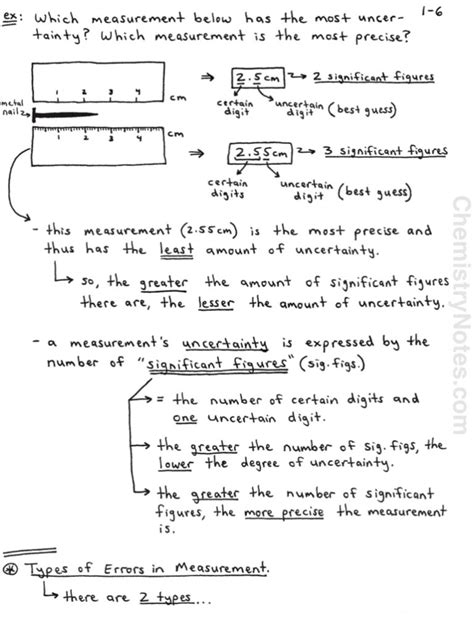 1-6
ex: Which measurement below has the most uncer-
tainty? Which measurement is the most precise?
1 2 3 4 cm
⇒ 2.5cm → 2 significant figures
certain digit uncertain digit (best guess)
metal nail
1 2 3 4 cm
⇒ 2.55cm → 3 significant figures
certain digits uncertain digit (best guess)
- this measurement (2.55cm) is the most precise and
thus has the least amount of uncertainty.
so, the greater the amount of significant figures
there are, the lesser the amount of uncertainty.
- a measurement's uncertainty is expressed by the
number of "significant figures" (sig. figs.)
= the number of certain digits and
one uncertain digit.
the greater the number of sig. figs, the
lower the degree of uncertainty.
the greater the number of significant
figures, the more precise the measurement
is.
* Types of Errors in Measurement.
there are 2 types...
ChemistryNotes.com